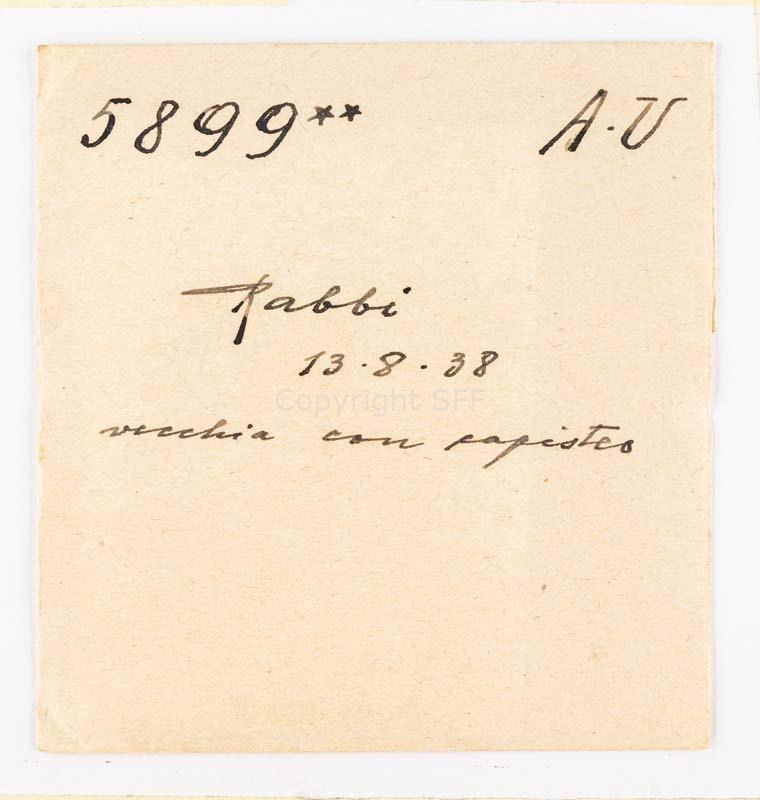 5899** A.U
Rabbi
13.8.38
Copyright SFF
vecchia con capisteo